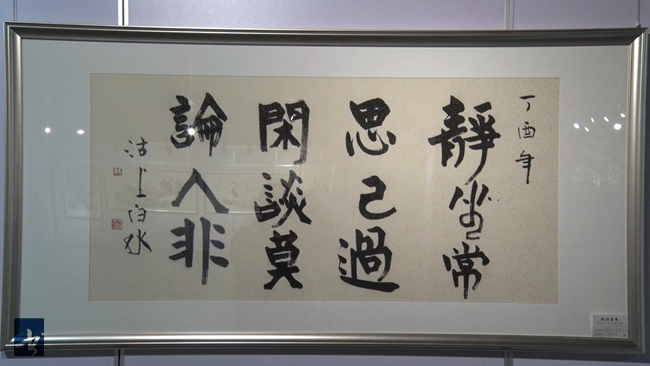 丁酉年
靜坐常
思己過
閑談莫
論人非
沽上白水